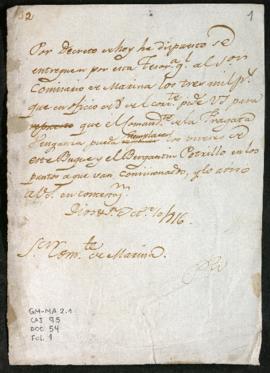 92 1
Por decreto de hoy he dispuesto se
entreguen por esta Tesor.ª g.l al Sor
Comisario de Marina los tres mil p.s
que en oficio de pide Vd. para
que el Comand.te de la Fragata
Venganza pueda reemplazar los viveres de
este Buque y el Bergantin Potrillo en los
puntos a que van comisionados, y lo aviso
a Vd. en contestac.n
Dios &.ª Oct.e 10/816
Sr. Com.te de Marina
GM-MA 2.1
CAJ 95
DOC 54
FOL 1